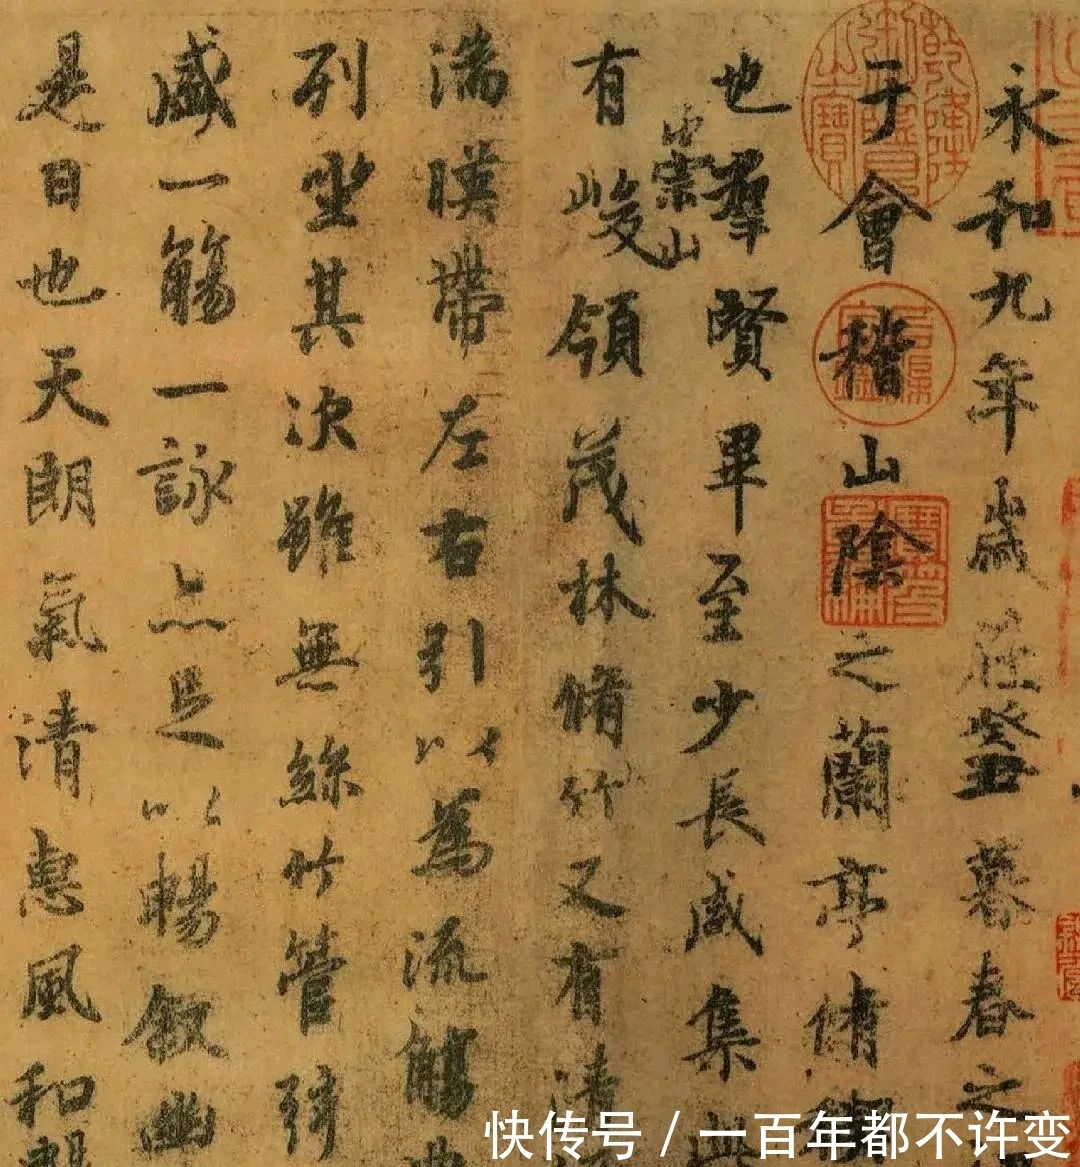 永和九年歲在癸丑暮春之
于會稽山陰之蘭亭脩
也羣賢畢至少長咸集
崇山
有峻領茂林脩竹又有清
湍暎帶左右引以為流觴
列坐其次雖無絲竹管弦
盛一觴一詠亦足以暢叙幽
是日也天朗氣清惠風和
乾隆御覽之寶
石渠定鑑
寶笈重編
快传号 / 一百年都不许变